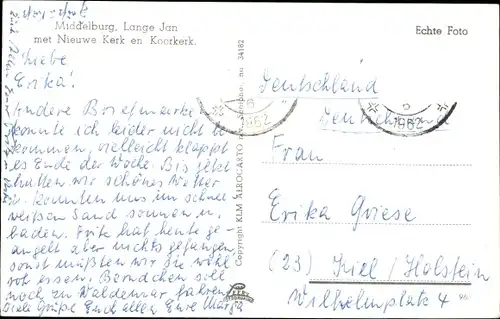 Middelburg, Lange Jan
met Nieuwe Kerk en Koorkerk.
Echte Foto
Liebe
Erika!
Andere Briefmarke
konnte ich leider nicht be-
kommen, vielleicht klappt
es Ende der Woche. Bis jetzt
hatten wir schönes Wetter
u. konnten uns im schnee
weißen Sand sonnen u.
baden. Fritz hat heute ge-
angelt aber nichts gefangen,
sonst müßten wir die wohl
essen. Berndchen soll
noch zu Waldemar fahren.
Viele Grüße Euch allen Eure
Copyright KLM AEROCARTO n.v. no 34182
6
1962
1962
Deutschland
Deutschland
Frau
Erika Griese
(23) Kiel/Holstein
Wilhelmplatz 4